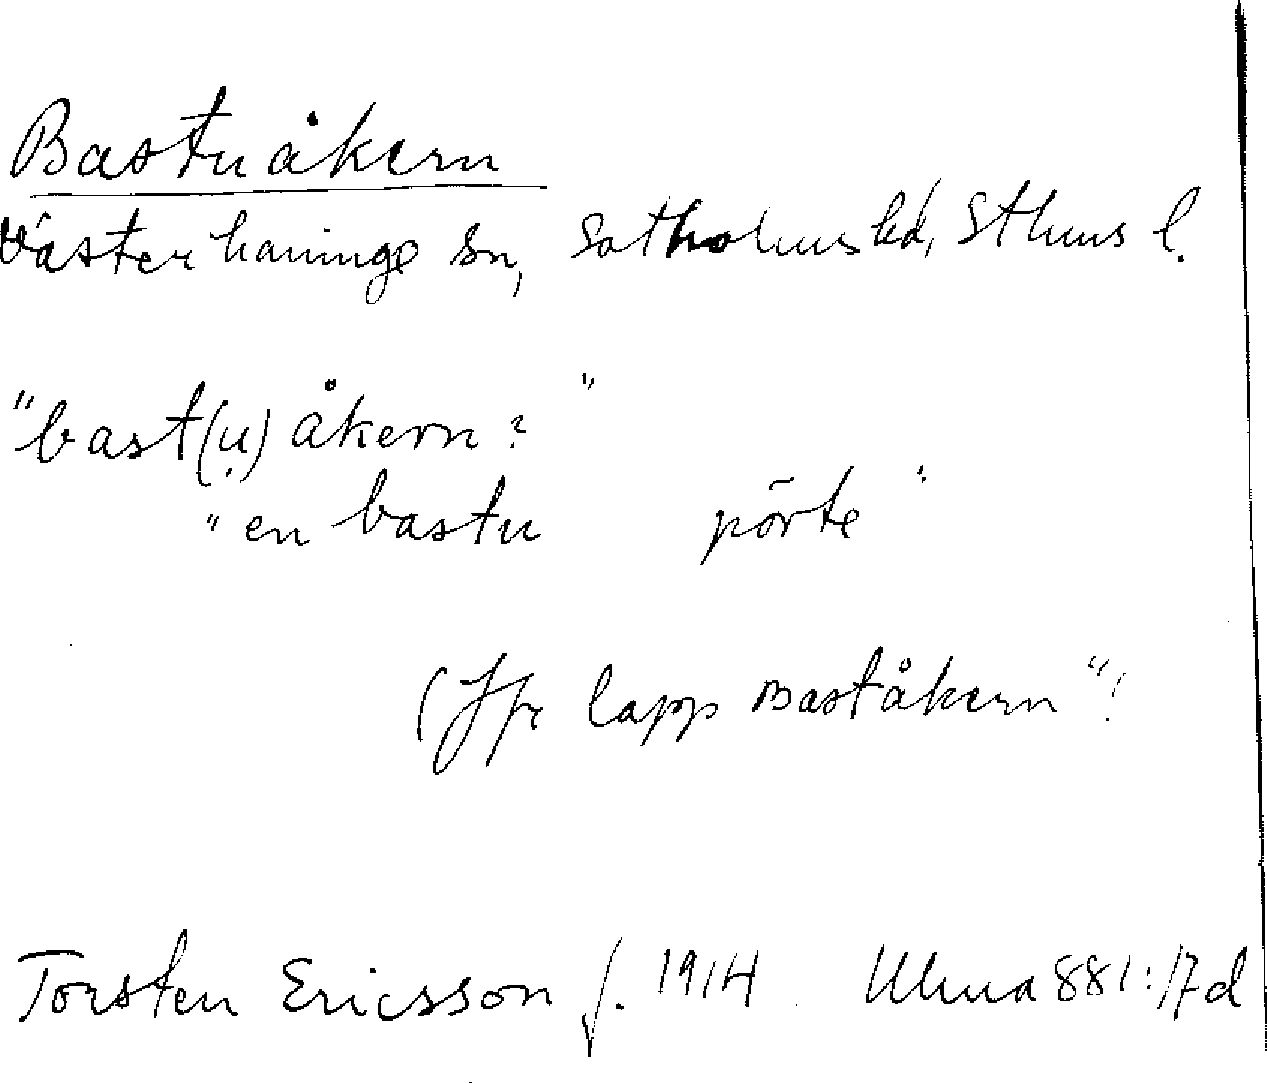 Bastuåkern
Västerhaninge sn, Sotholms hd, Sthms l.
"bast(u)åkern? "
"en bastu pörte"
(Jfr lapp Baståkern"!
Torsten Ericsson f. 1914. Uhma 881:17d